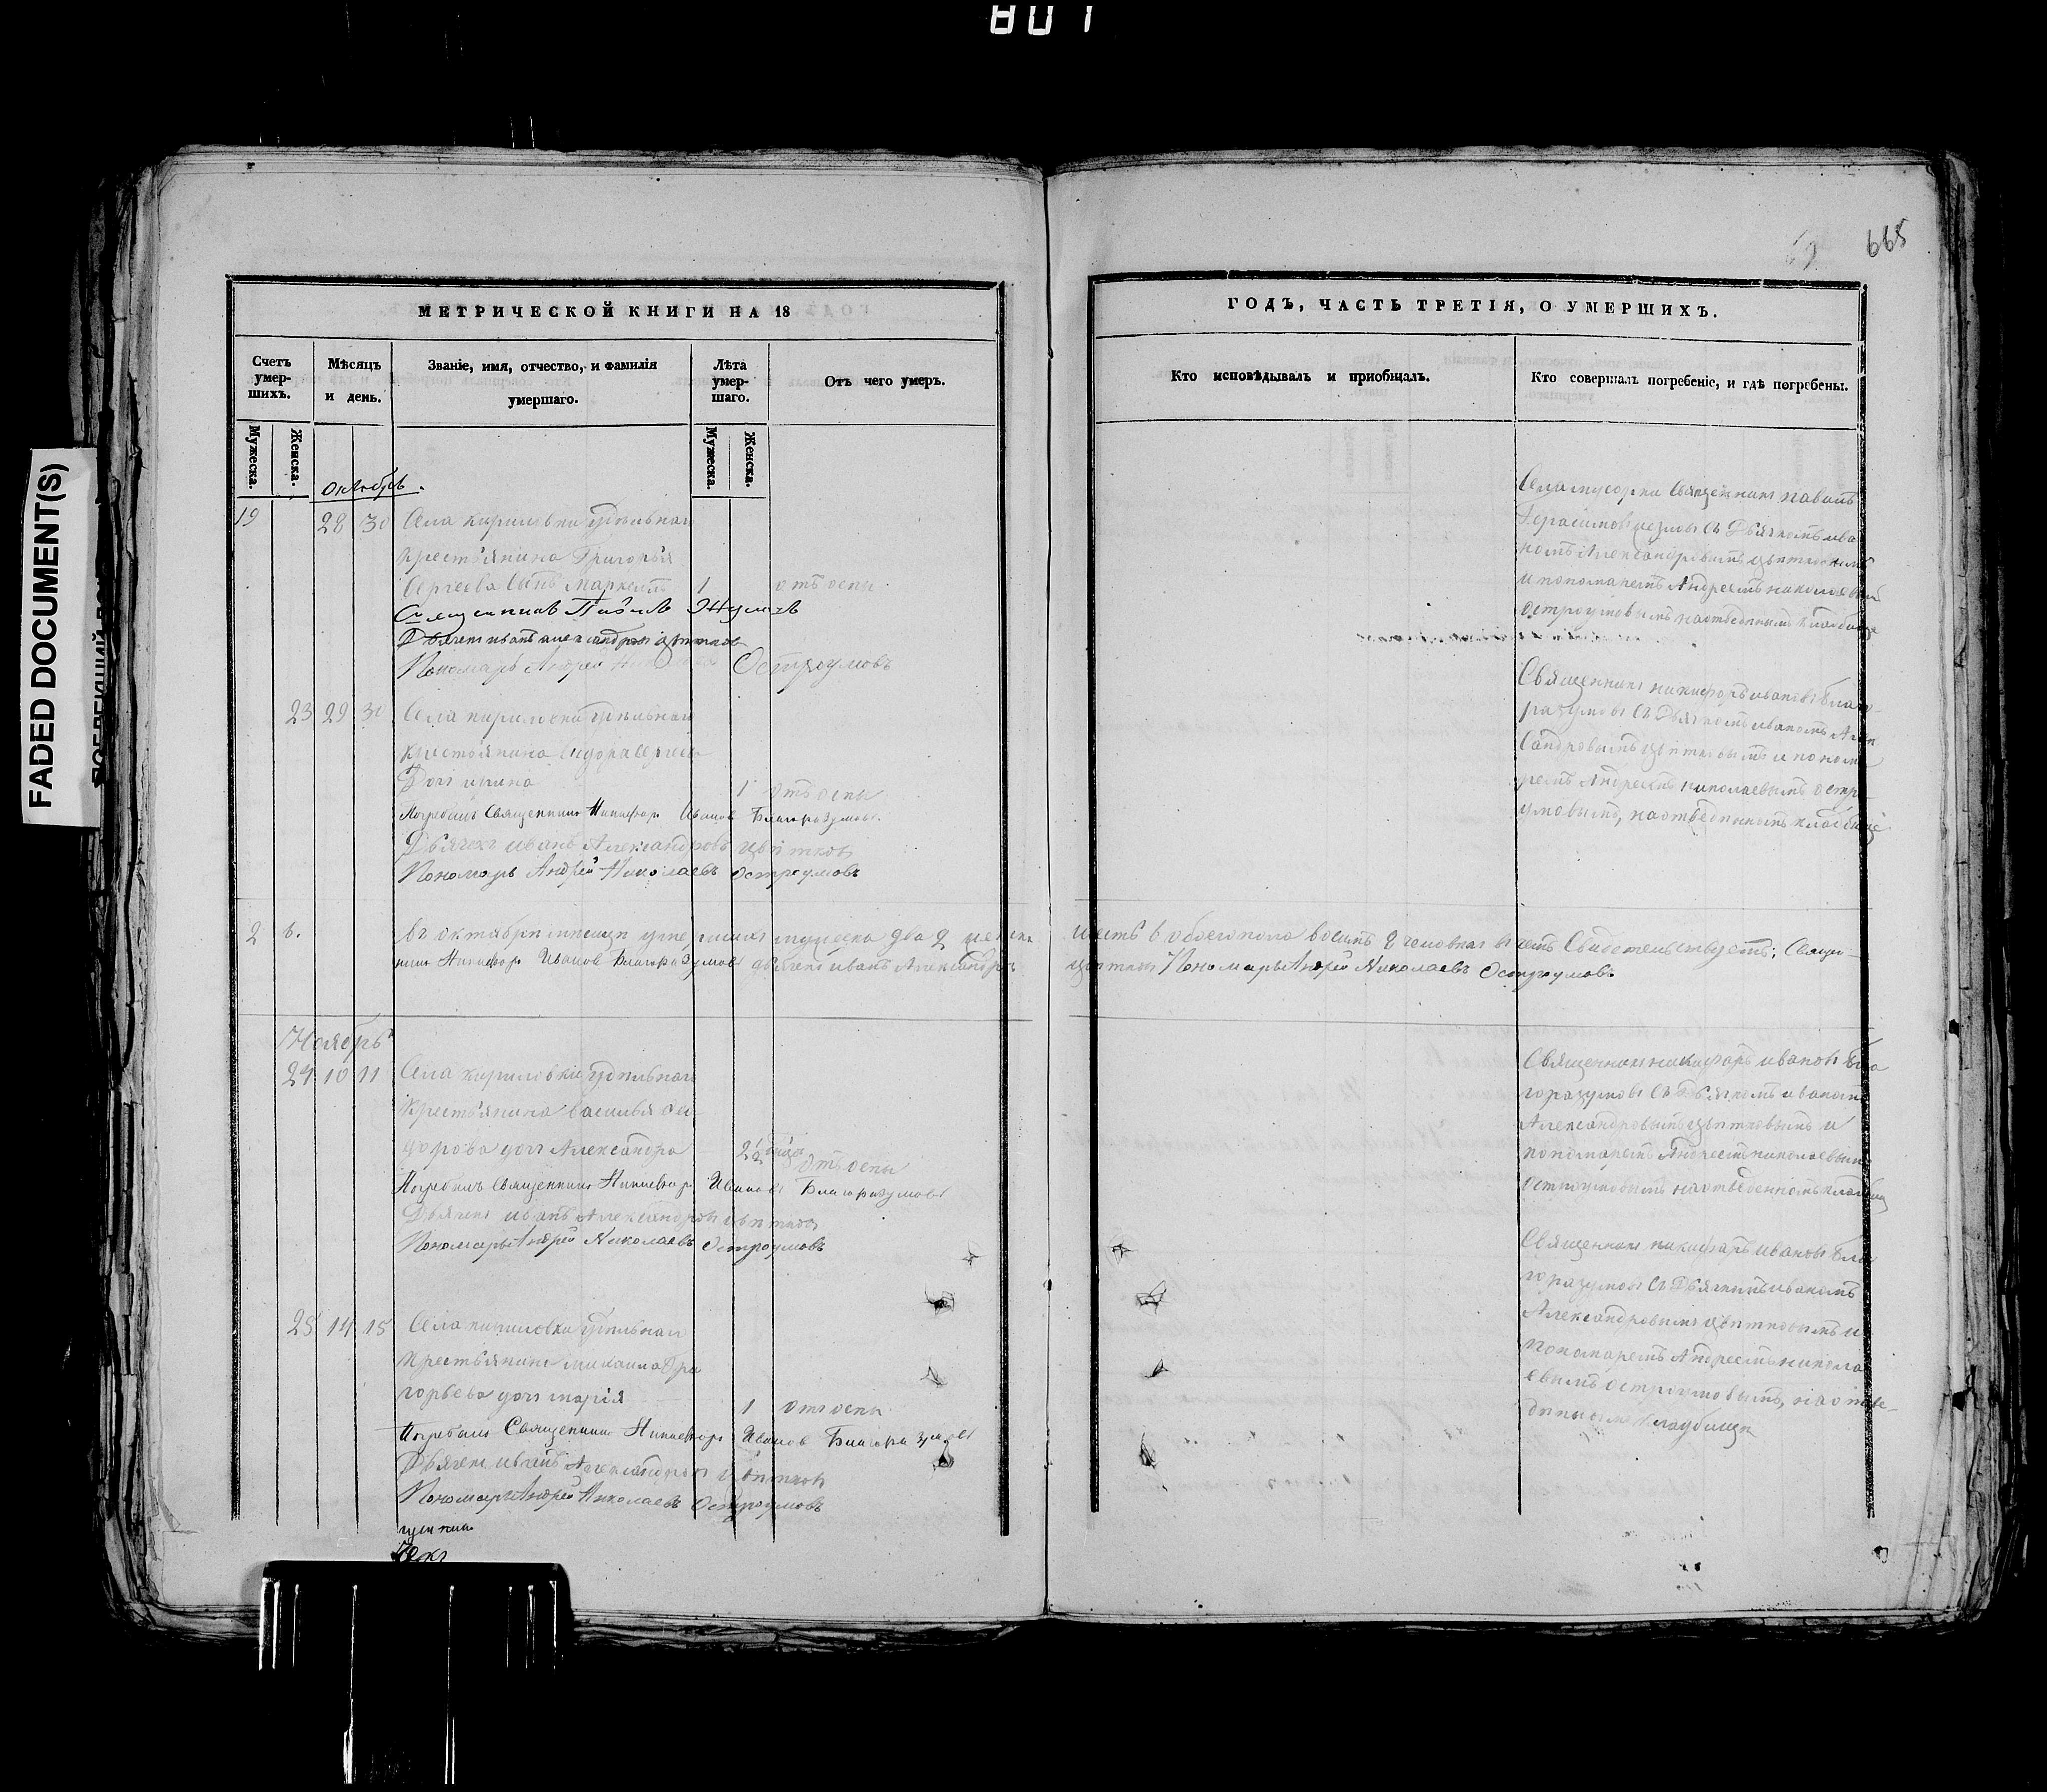 801
FADED DOCUMENT(S)
665
МЕТРИЧЕСКОЙ КНИГИ НА 18
Счетъ умер-шихъ.
Мѣсяцъ и день.
Званіе, имя, отчество, и фамилія умершаго.
Лѣта умер-шаго.
Отъ чего умеръ.
Мужеска.
Женска.
Мужеска.
Женска.
Октябрь.
19 28 30 Села кириловки удѣльнаго
крестьянина Григорья
Сергеева сынъ Маркелъ 1 отъ оспы
Священникъ Павелъ
Дьячекъ иванъ александровъ цвѣтковъ
Пономарь Андрей Николаевъ Остроумовъ
23 29 30 Села кириловки удѣльнаго
крестьянина Сергеева
дочь ирина 1 отъ оспы
Погребалъ Священникъ Никифоръ Ивановъ Благоразумовъ
Дьячекъ иванъ Александровъ цвѣтковъ
Пономарь Андрей Николаевъ Остроумовъ
2 6. въ октябрѣ мѣсяцѣ умершихъ мужеска два 2 женска
никъ Никифоръ Ивановъ Благоразумовъ дьячекъ иванъ Александровъ
Ноябрь
24 10 11 Села кириловки удѣльнаго
крестьянина василья Фе-
дорова дочь Александра 2 1/2 года отъ оспы
Погребалъ Священникъ Никифоръ Ивановъ Благоразумовъ
Дьячекъ иванъ Александровъ цвѣтковъ
Пономарь Андрей Николаевъ Остроумовъ
25 14 15 Села кириловки удѣльнаго
крестьянина михаила
горьева дочь марія 1 отъ оспы
Погребалъ Священникъ Никифоръ Ивановъ Благоразумовъ
Дьячекъ иванъ Александровъ цвѣтковъ
Пономарь Андрей Николаевъ Остроумовъ
ГОДЪ, ЧАСТЬ ТРЕТІЯ, О УМЕРШИХЪ.
Кто исповѣдывалъ и пріобщалъ.
Кто совершалъ погребеніе, и гдѣ погребены.
Села Священникъ павелъ
Герасимовъ съ Дьячкомъ ива
номъ Александровымъ цвѣтковымъ
и пономаремъ Андреемъ николаевымъ
остроумовымъ на отведенномъ кладбище
Священникъ никифоръ ивановъ благо-
разумовъ съ Дьячкомъ иваномъ Алек
сандровымъ цвѣтковымъ и понома
ремъ Андреемъ николаевымъ остро
умовымъ, на отведенномъ кладбище
шесть 6 обоего пола восемь 8 человекъ въ чемъ Свидетельствуетъ: Свящ-
цвѣтковъ Пономарь Андрей Николаевъ Остроумовъ
Священникъ никифоръ ивановъ бла
горазумовъ съ Дьячкомъ иваномъ
Александровымъ цвѣтковымъ и
пономаремъ Андреемъ николаевым
остроумовымъ на отведенномъ кладбищ
Священникъ никифоръ ивановъ бла
горазумовъ съ Дьячкомъ иваномъ
Александровымъ цвѣтковымъ и
пономаремъ Андреемъ никола
евымъ остроумовымъ, на отве-
денномъ кладбище